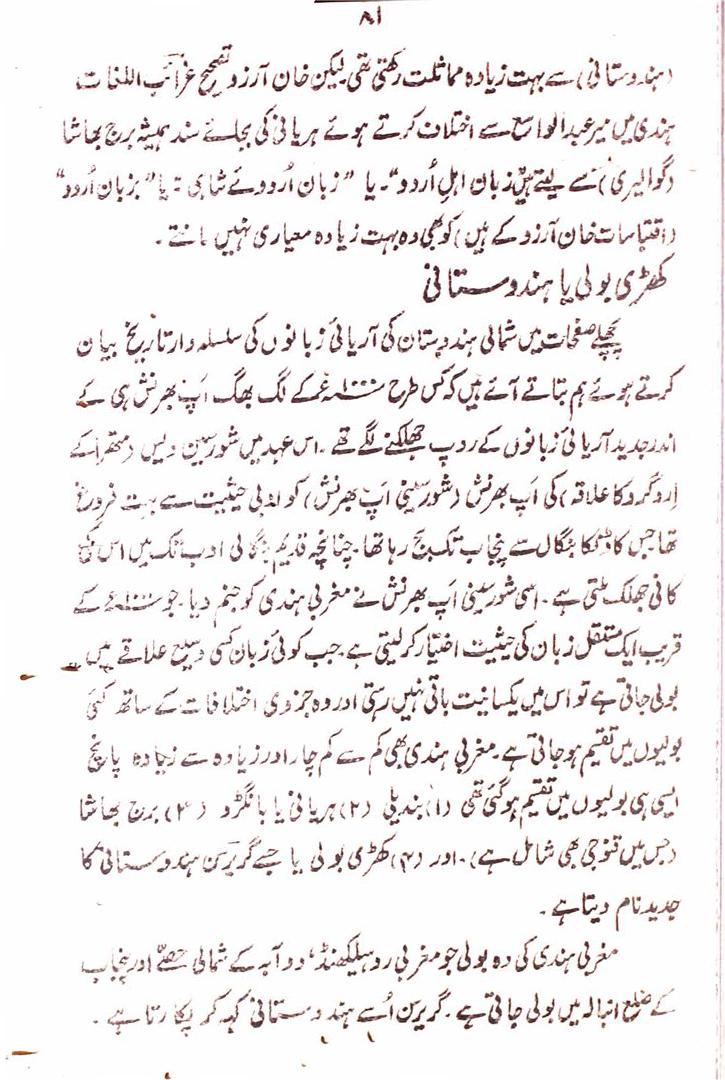 ۸۱
(ہندوستانی) سے بہت زیادہ مماثلت رکھتی تھی لیکن خان آرزو تصحیح غرائب اللغات
ہندی میں میر عبدالواسع سے اختلاف کرتے ہوئے ہریانی کی بجائے سند ہمیشہ برج بھاشا
(گوالیری) سے لیتے ہیں زبان اہلِ اُردو"۔ یا "زبان اُردوئے شاہی" یا "بزبان اُردو"
(اقتباسات خان آرزو کے ہیں) کو بھی وہ بہت زیادہ معیاری نہیں مانتے۔
کھڑی بولی یا ہندوستانی
پچھلے صفحات میں شمالی ہندوستان کی آریائی زبانوں کی سلسلہ وار تاریخ بیان
کرتے ہوئے ہم بتاتے آئے ہیں کہ کس طرح ۱۰۰۰ء کے لگ بھگ اَپ بھرنش ہی کے
اندر جدید آریائی زبانوں کے روپ جھلکنے لگے تھے۔ اس عہد میں شورسین دیس (متھرا کے
اِردگرد کا علاقہ) کی اَپ بھرنش (شورسینی اَپ بھرنش) کو ادبی حیثیت سے بہت فروغ
تھا جس کا ڈنکا بنگال سے پنجاب تک بج رہا تھا۔ چنانچہ قدیم بنگالی ادب تک میں اس کی
کافی جھلک ملتی ہے۔ اسی شورسینی اَپ بھرنش نے مغربی ہندی کو جنم دیا۔ جو ۱۰۰۰ء کے
قریب ایک مستقل زبان کی حیثیت اختیار کر لیتی ہے۔ جب کوئی زبان کسی وسیع علاقے میں
بولی جاتی ہے تو اس میں یکسانیت باقی نہیں رہتی اور وہ جزوی اختلافات کے ساتھ کئی
بولیوں میں تقسیم ہو جاتی ہے۔ مغربی ہندی بھی کم سے کم چار اور زیادہ سے زیادہ پانچ
ایسی ہی بولیوں میں تقسیم ہو گئی تھی (۱) بندیلی (۲) ہریانی یا بانگڑو (۳) برج بھاشا
(جس میں قنوجی بھی شامل ہے)۔ اور (۴) کھڑی بولی یا جسے گریرسن ہندوستانی کا
جدید نام دیتا ہے۔
مغربی ہندی کی وہ بولی جو مغربی روہیلکھنڈ، دوآبہ کے شمالی حصے اور پنجاب
کے ضلع انبالہ میں بولی جاتی ہے۔ گریرسن اُسے ہندوستانی کہہ کر پکارتا ہے۔